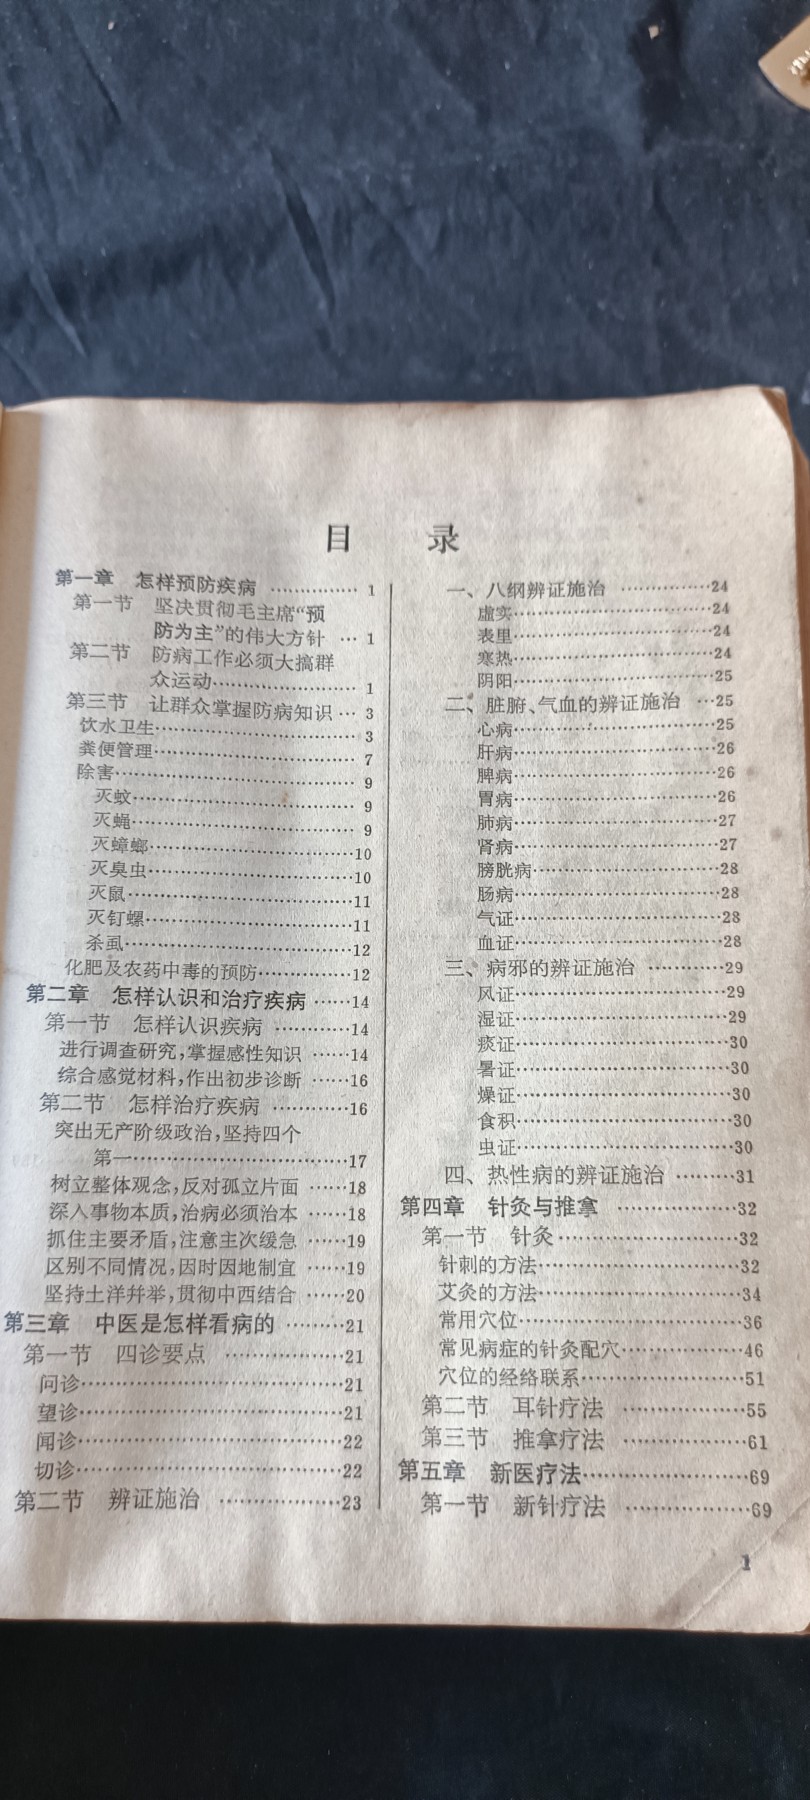 目　录
第一章　怎样预防疾病 …………… 1
第一节　坚决贯彻毛主席“预
防为主”的伟大方针 … 1
第二节　防病工作必须大搞群
众运动…………………… 1
第三节　让群众掌握防病知识 … 3
饮水卫生…………………………… 3
粪便管理…………………………… 7
除害………………………………… 9
灭蚊……………………………… 9
灭蝇……………………………… 9
灭蟑螂……………………………10
灭臭虫……………………………10
灭鼠………………………………11
灭钉螺……………………………11
杀虱………………………………12
化肥及农药中毒的预防…………12
第二章　怎样认识和治疗疾病 ……14
第一节　怎样认识疾病 …………14
进行调查研究,掌握感性知识 ……14
综合感觉材料,作出初步诊断 ……16
第二节　怎样治疗疾病 …………16
突出无产阶级政治,坚持四个
第一………………………………17
树立整体观念,反对孤立片面 ……18
深入事物本质,治病必须治本 ……18
抓住主要矛盾,注意主次缓急 ……19
区别不同情况,因时因地制宜 ……19
坚持土洋并举,贯彻中西结合 ……20
第三章　中医是怎样看病的 ………21
第一节　四诊要点 ………………21
问诊…………………………………21
望诊…………………………………21
闻诊…………………………………22
切诊…………………………………22
第二节　辨证施治 ………………23
一、八纲辨证施治 ……………24
虚实……………………………24
表里……………………………24
寒热……………………………24
阴阳……………………………25
二、脏腑、气血的辨证施治 …25
心病……………………………25
肝病……………………………26
脾病……………………………26
胃病……………………………26
肺病……………………………27
肾病……………………………27
膀胱病…………………………28
肠病……………………………28
气证……………………………28
血证……………………………28
三、病邪的辨证施治 …………29
风证……………………………29
湿证……………………………29
痰证……………………………30
暑证……………………………30
燥证……………………………30
食积……………………………30
虫证……………………………30
四、热性病的辨证施治 ………31
第四章　针灸与推拿 ………………32
第一节　针灸………………………32
针刺的方法…………………………32
艾灸的方法…………………………34
常用穴位……………………………36
常见病症的针灸配穴………………46
穴位的经络联系……………………51
第二节　耳针疗法 ………………55
第三节　推拿疗法 ………………61
第五章　新医疗法……………………69
第一节　新针疗法 ………………69
1